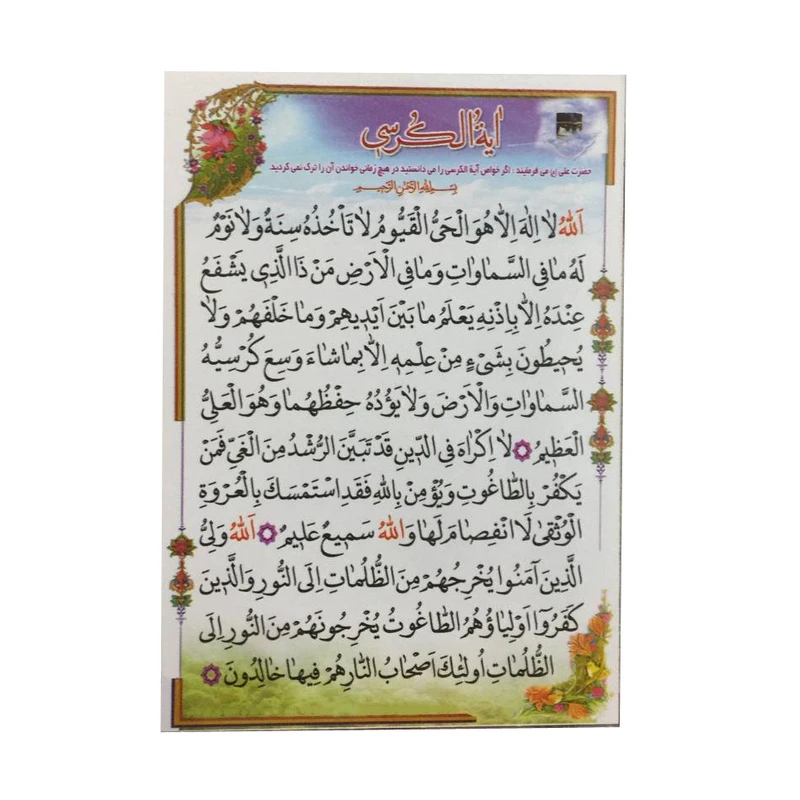 اٰیةُ الکُرسی
حضرت علی (ع) می فرمایند : اگر خواص آیة الکرسی را می دانستید در هیچ زمانی خواندن آن را ترک نمی کردید
بِسْمِ اللهِ الرَّحْمٰنِ الرَّحیمِ
اَللهُ لا اِلٰهَ اِلاّ هُوَ الْحَیُّ الْقَیُّومُ لا تَأْخُذُهُ سِنَةٌ وَلا نَوْمٌ
لَهُ ما فِی السَّماواتِ وَما فِی الْاَرْضِ مَنْ ذَا الَّذی یَشْفَعُ
عِنْدَهُ اِلاّ بِاِذْنِهِ یَعْلَمُ ما بَیْنَ اَیْدیهِمْ وَما خَلْفَهُمْ وَلا
یُحیطُونَ بِشَیْءٍ مِنْ عِلْمِهِ اِلاّ بِما شاءَ وَسِعَ کُرْسِیُّهُ
السَّماواتِ وَالْاَرْضَ وَلا یَؤُدُهُ حِفْظُهُما وَهُوَ الْعَلِیُّ
الْعَظیمُ لا اِکْراهَ فِی الدّینِ قَدْ تَبَیَّنَ الرُّشْدُ مِنَ الْغَیِّ فَمَنْ
یَکْفُرْ بِالطّاغُوتِ وَیُؤْمِنْ بِاللهِ فَقَدِ اسْتَمْسَكَ بِالْعُرْوَةِ
الْوُثْقیٰ لَا انْفِصامَ لَها وَاللهُ سَمیعٌ عَلیمٌ اَللهُ وَلِیُّ
الَّذینَ آمَنُوا یُخْرِجُهُمْ مِنَ الظُّلُماتِ اِلَی النُّورِ وَالَّذینَ
کَفَرُوا اَوْلِیاؤُهُمُ الطّاغُوتُ یُخْرِجُونَهُمْ مِنَ النُّورِ اِلَی
الظُّلُماتِ اُولٰئِكَ اَصْحابُ النّارِ هُمْ فیها خالِدُونَ